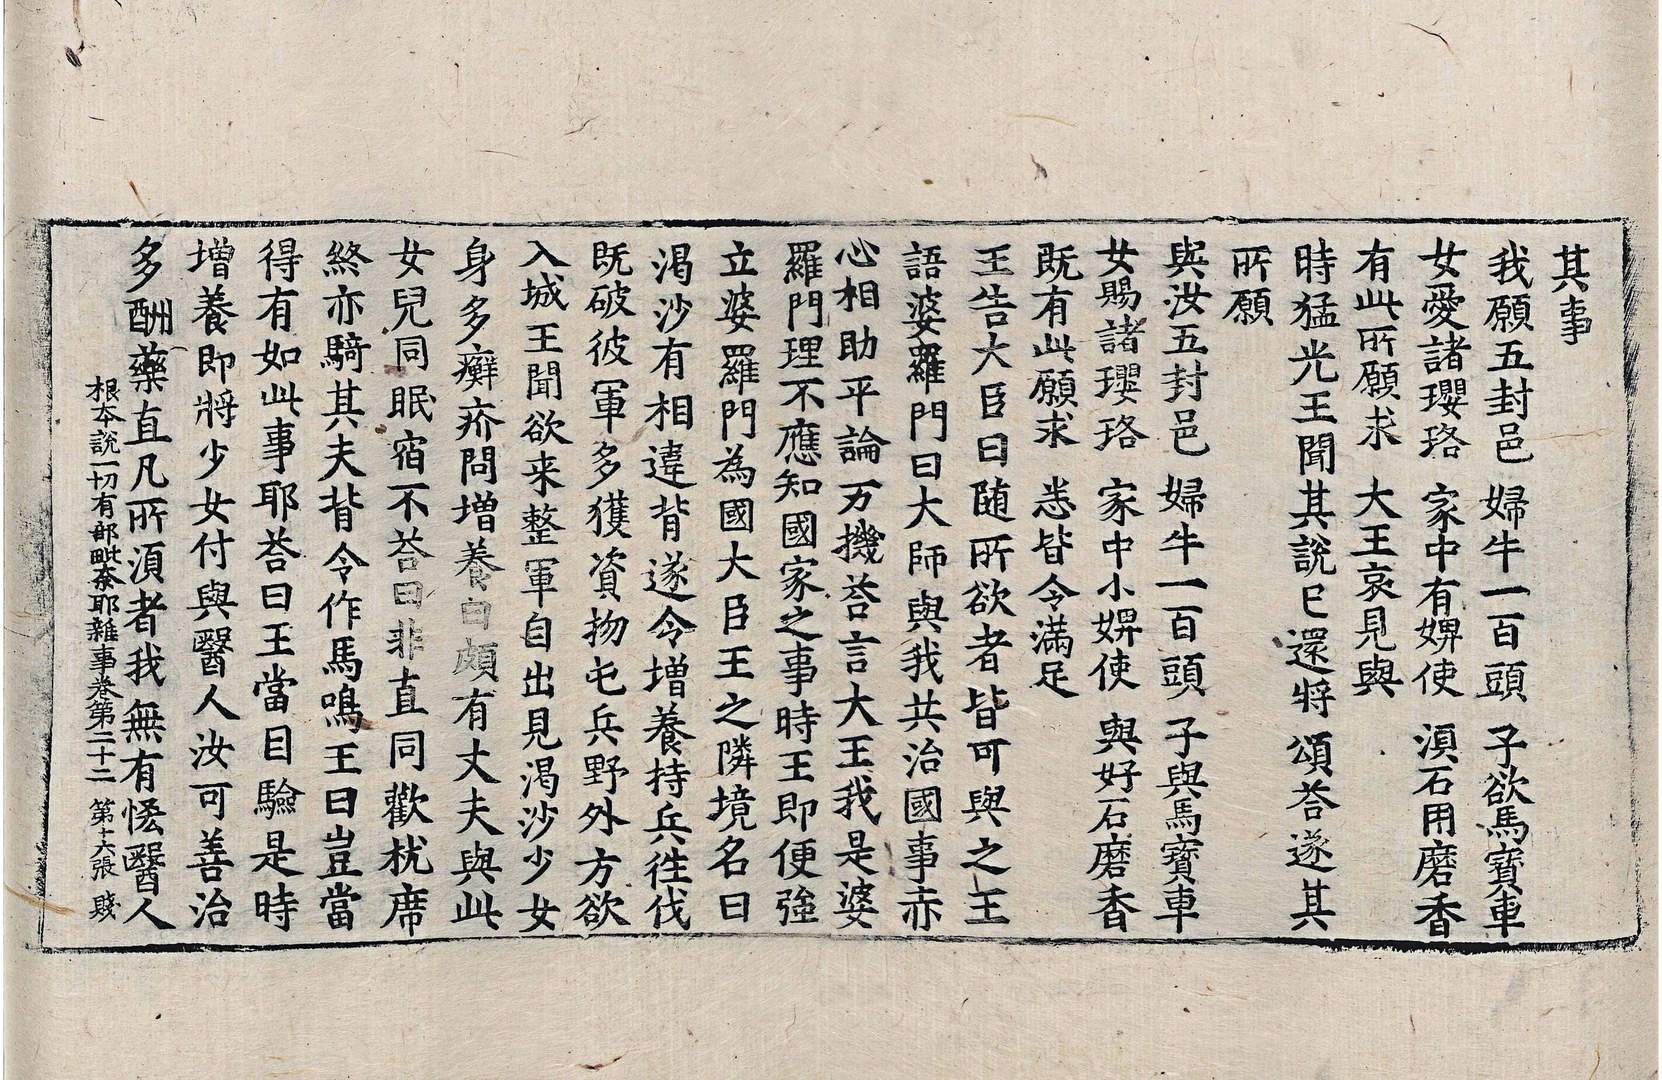 其事
我願五封邑　婦牛一百頭　子欲馬寶車
女愛諸瓔珞　家中有婢使　湏石用磨香
有此所願求　大王哀見與
時猛光王聞其說已還將頌荅遂其
所願
與汝五封邑　婦牛一百頭　子與馬寶車
女賜諸瓔珞　家中小婢使　與好石磨香
既有此願求　悉皆令滿足
王告大臣曰随所欲者皆可與之王
語婆羅門曰大師與我共治國事亦
心相助平論万機荅言大王我是婆
羅門理不應知國家之事時王即便強
立婆羅門為國大臣王之隣境名曰
渴沙有相違背遂令增養持兵往伐
既破彼軍多獲資物屯兵野外方欲
入城王聞欲来整軍自出見渴沙少女
身多癬疥問增養曰頗有丈夫與此
女兒同眠宿不荅曰非直同歡枕席
終亦騎其夫背令作馬鳴王曰豈當
得有如此事耶荅曰王當目驗是時
增養即將少女付與醫人汝可善治
多酬藥直凡所湏者我無有恡醫人
根本說一切有部毗奈耶雜事卷第二十二　第十六張　賤